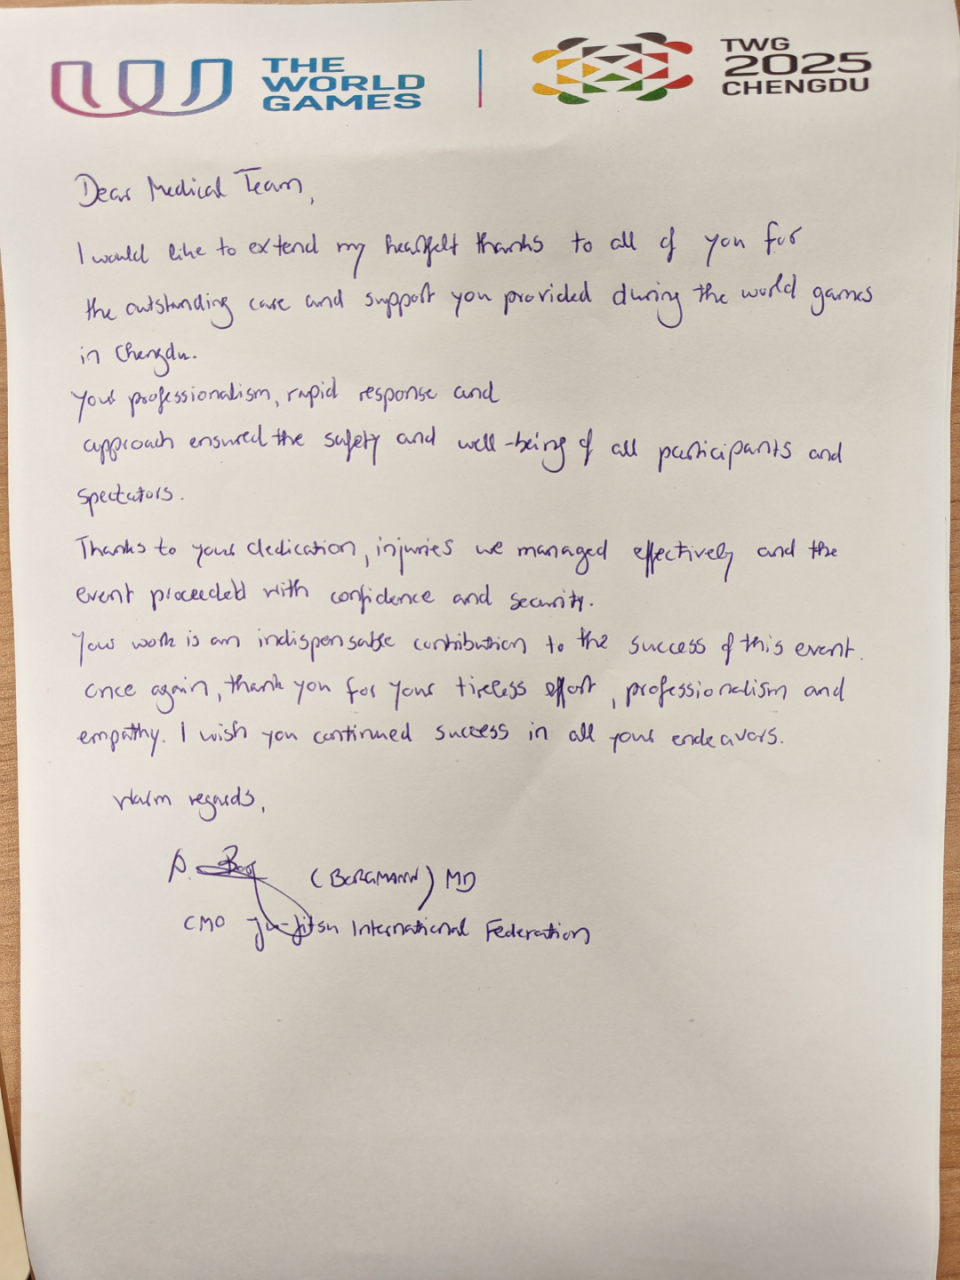 THE WORLD GAMES
TWG 2025 CHENGDU
Dear Medical Team,
I would like to extend my heartfelt thanks to all of you for
the outstanding care and support you provided during the world games
in Chengdu.
Your professionalism, rapid response and
approach ensured the safety and well-being of all participants and
spectators.
Thanks to your dedication, injuries we managed effectively and the
event proceeded with confidence and security.
Your work is an indispensable contribution to the success of this event.
once again, thank you for your tireless effort, professionalism and
empathy. I wish you continued success in all your endeavors.
Warm regards,
(BERGMANN) MD
CMO Ju-Jitsu International Federation